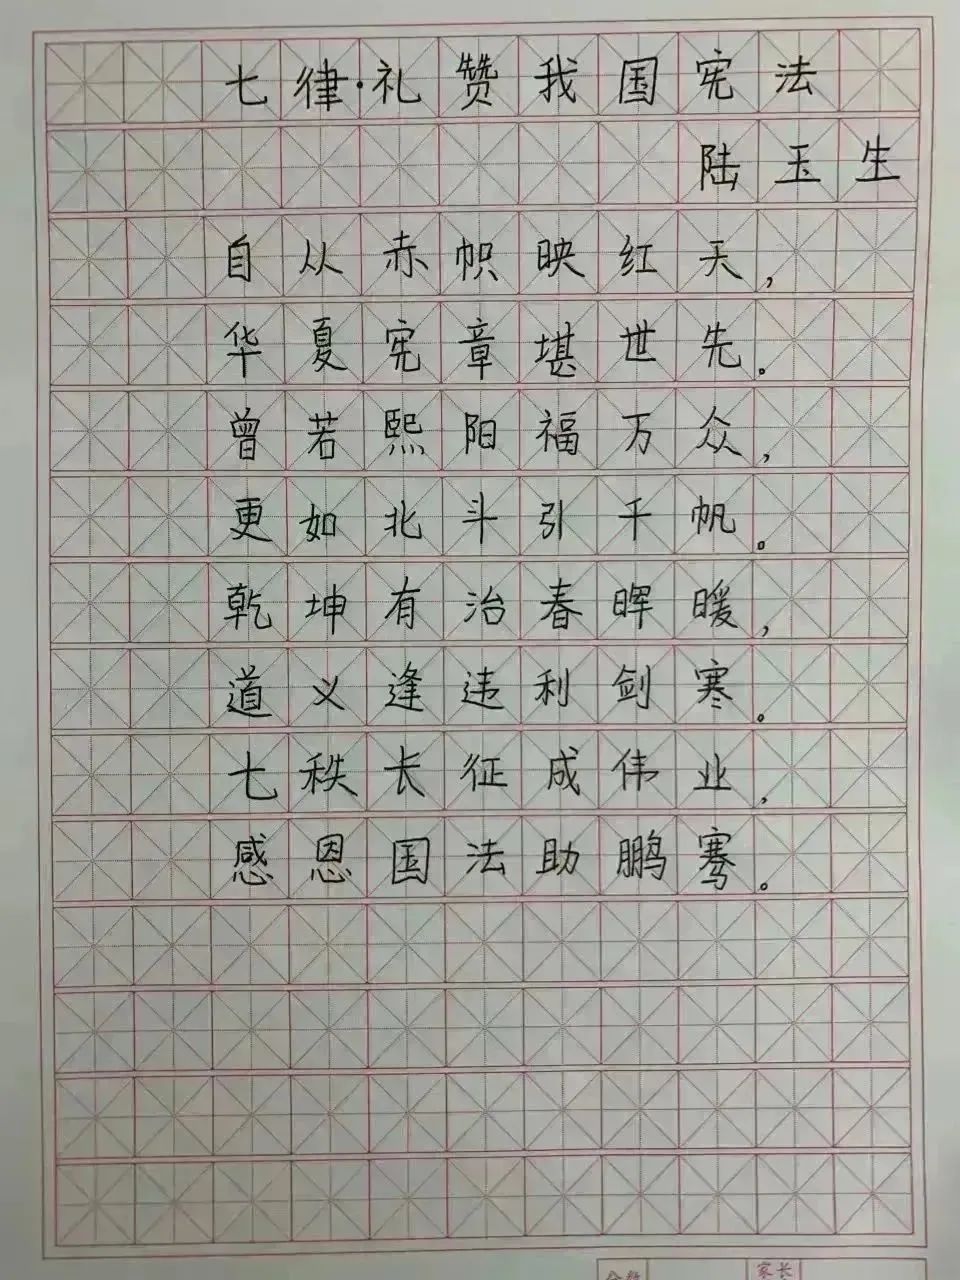 七律·礼赞我国宪法
陆玉生
自从赤帜映红天，
华夏宪章堪世先。
曾若熙阳福万众，
更如北斗引千帆。
乾坤有治春晖暖，
道义逢违利剑寒。
七秩长征成伟业，
感恩国法助鹏骞。
家长